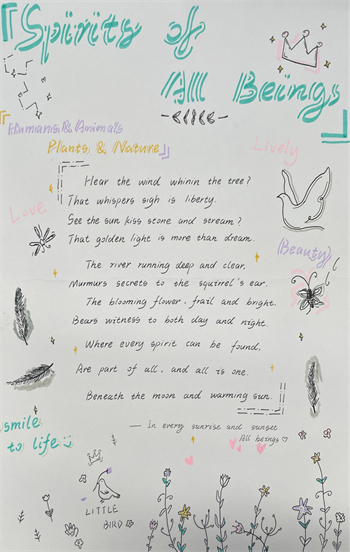 Spirits of
All Beings
Humans & Animals
Plants & Nature
Lively
Love
(Beauty)
Hear the wind whinin the tree?
That whispers sigh is liberty.
See the sun kiss stone and stream?
That golden light is more than dream.
The river running deep and clear,
Murmurs secrets to the squirrel's ear.
The blooming flower, frail and bright.
Bears witness to both day and night.
Where every spirit can be found,
Are part of all, and all is one.
Beneath the moon and warming sun.
— In every sunrise and sunset
All beings
smile
to life
LITTLE
BIRD